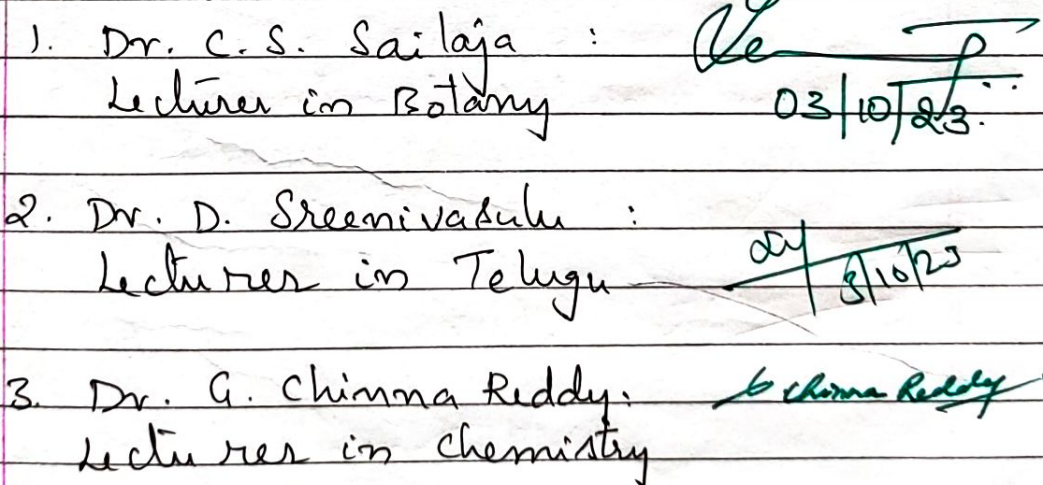 1. Dr. C. S. Sailaja :
03/10/23.
Lecturer in Botany
2. Dr. D. Sreenivasulu :
Lecturer in Telugu 3/10/23
3. Dr. G. Chinna Reddy: G Chinna Reddy
Lecturer in Chemistry